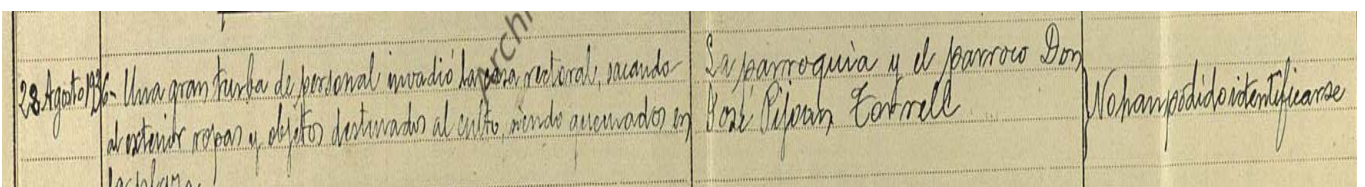 28 Agosto 1936- Una gran turba de personal invadió la casa rectoral, sacando
al exterior ropas y objetos destinados al culto, siendo quemados en
la plaza.
La parroquia y el parroco Don
José Pijoan
No han podido identificarse